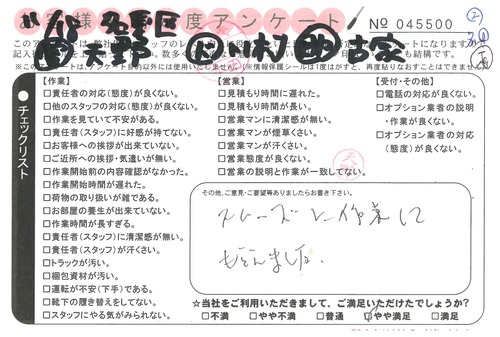 お客様満足度アンケート
No 045500
チェックリスト
【作業】
□責任者の対応(態度)が良くない。
□他のスタッフの対応(態度)が良くない。
□作業を見ていて不安がある。
□責任者(スタッフ)に好感が持てない。
□お客様への挨拶が出来ていない。
□ご近所への挨拶・気遣いが無い。
□作業開始前の内容確認がなかった。
□作業開始時間が遅れた。
□荷物の取り扱いが雑である。
□お部屋の養生が出来ていない。
□作業時間が長すぎる。
□責任者(スタッフ)に清潔感が無い。
□責任者(スタッフ)が汗くさい。
□トラックが汚い。
□梱包資材が汚い。
□運転が不安(下手)である。
□靴下の履き替えをしてない。
□スタッフにやる気がみられない。
【営業】
□見積もり時間に遅れた。
□見積もり時間が長い。
□営業マンに清潔感が無い。
□営業マンが煙草くさい。
□営業マンが汗くさい。
□営業態度が良くない。
□営業の説明と作業が一致してない。
【受付・その他】
□電話の対応が良くない。
□オプション業者の説明
・作業が良くない。
□オプション業者の対応
(態度)が良くない。
その他、ご意見・ご要望等ありましたらお書き下さい。
スムーズに作業して
もらえました。
☆当社をご利用いただきまして、ご満足いただけたでしょうか?
□不満 □やや不満 □普通 □やや満足 □満足